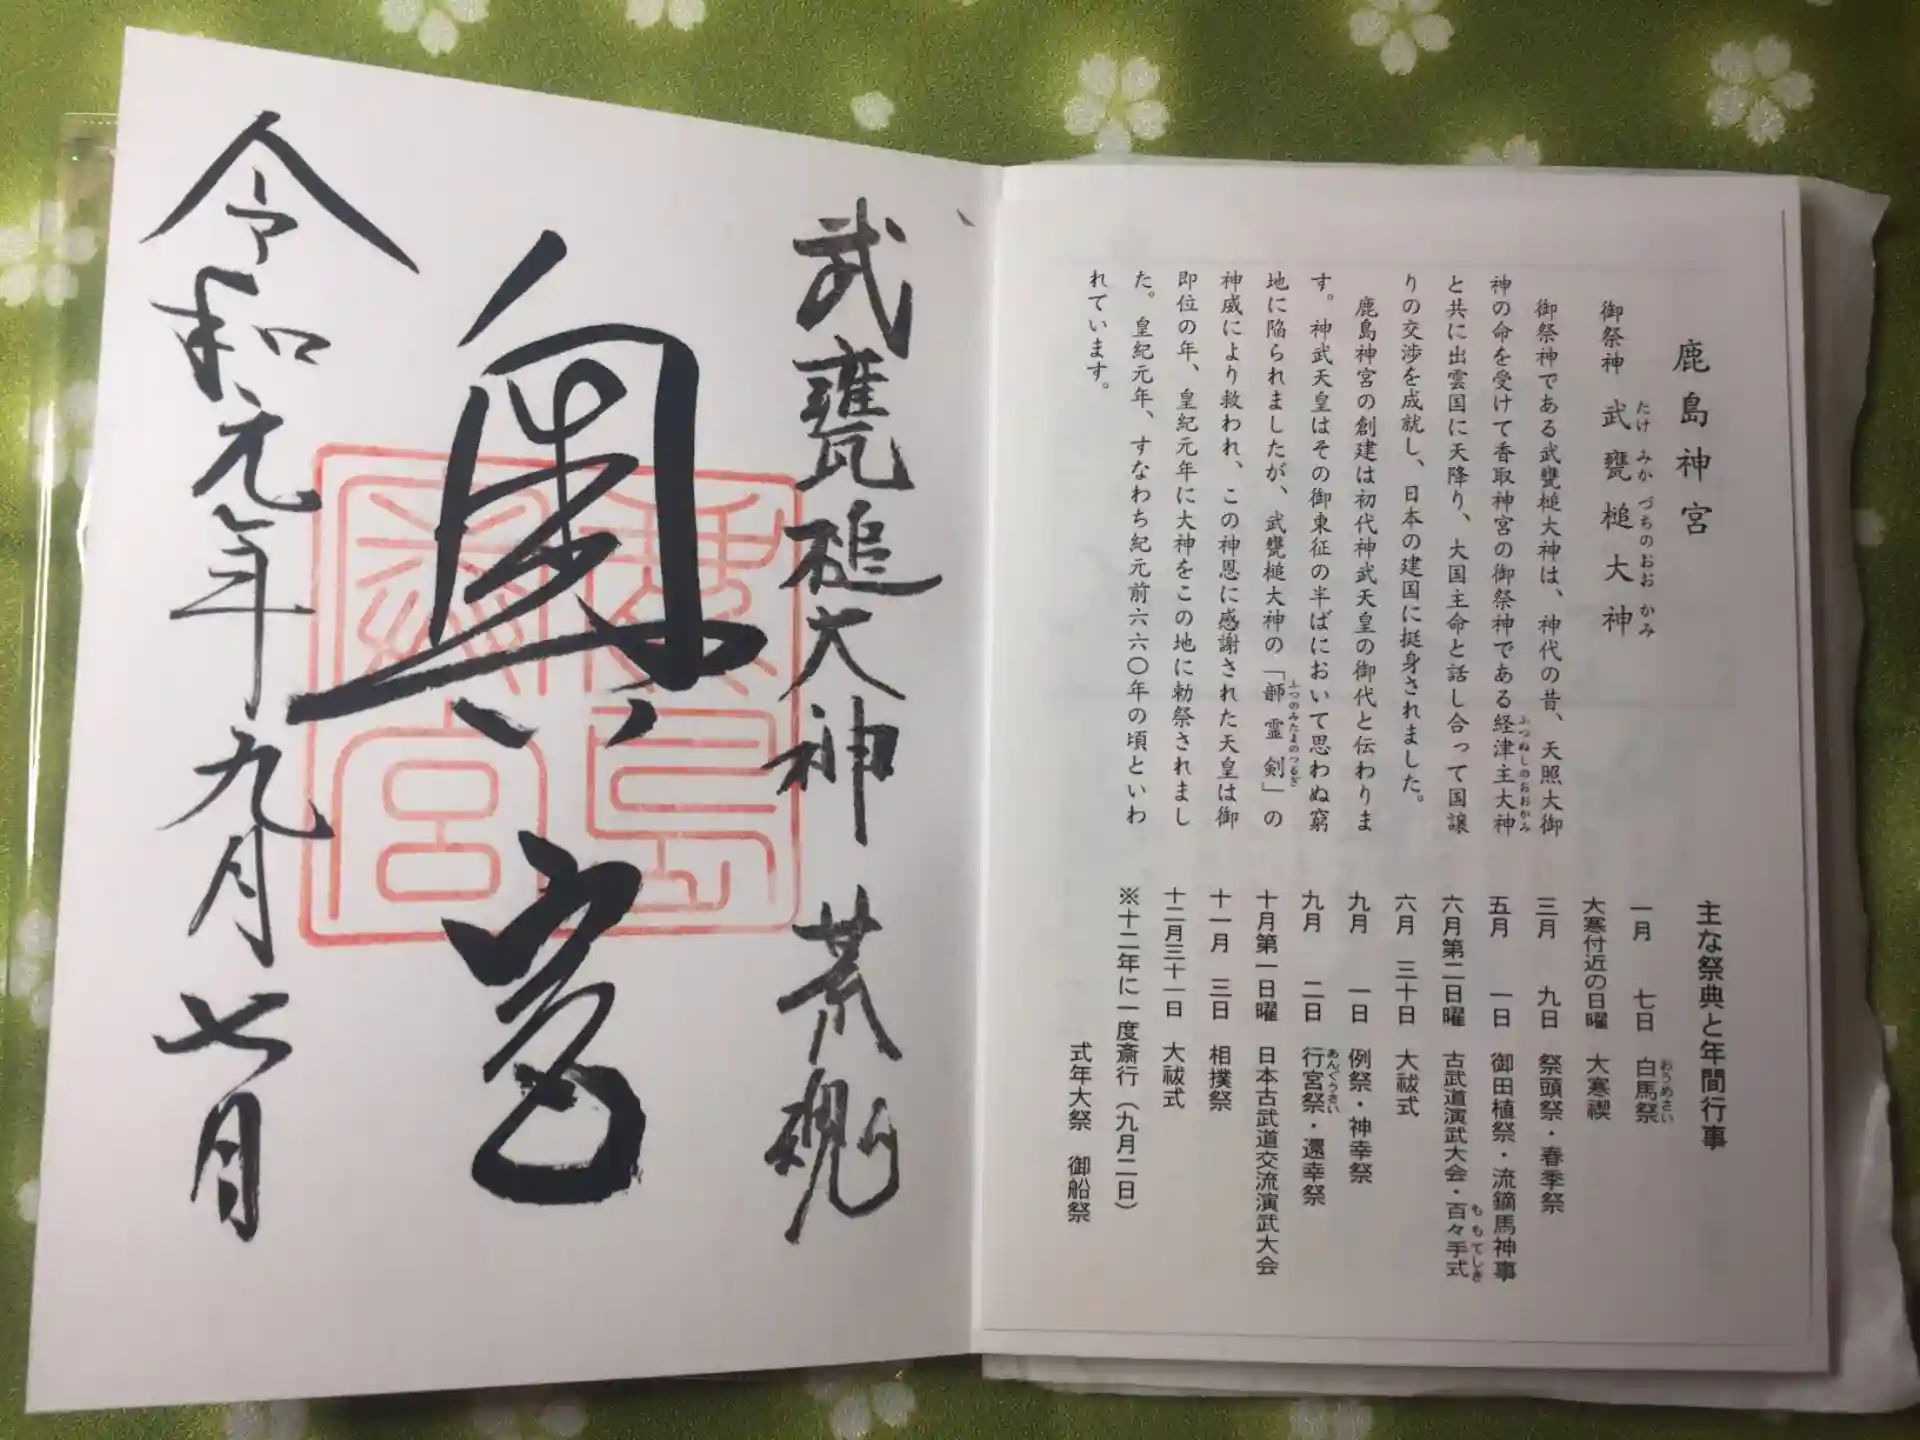 鹿島神宮
御祭神 武甕槌大神
たけ みか づちの おお かみ
御祭神である武甕槌大神は、神代の昔、天照大御
神の命を受けて香取神宮の御祭神である経津主大神
ふつぬしのおおかみ
と共に出雲国に天降り、大国主命と話し合って国譲
りの交渉を成就し、日本の建国に挺身されました。
鹿島神宮の創建は初代神武天皇の御代と伝わりま
す。神武天皇はその御東征の半ばにおいて思わぬ窮
地に陥られましたが、武甕槌大神の「韴霊剣」の
ふつのみたまのつるぎ
神威により救われ、この神恩に感謝された天皇は御
即位の年、皇紀元年に大神をこの地に勅祭されまし
た。皇紀元年、すなわち紀元前六六〇年の頃といわ
れています。
主な祭典と年間行事
一月 七日 白馬祭
おうめさい
大寒付近の日曜 大寒禊
三月 九日 祭頭祭・春季祭
五月 一日 御田植祭・流鏑馬神事
六月第二日曜 古武道演武大会・百々手式
ももてしき
六月 三十日 大祓式
九月 一日 例祭・神幸祭
九月 二日 行宮祭・還幸祭
あんぐうさい
十月第一日曜 日本古武道交流演武大会
十一月 三日 相撲祭
十二月三十一日 大祓式
※十二年に一度斎行（九月二日）
式年大祭 御船祭
武甕槌大神 荒魂
奥宮
鹿島神宮
令和元年九月七日